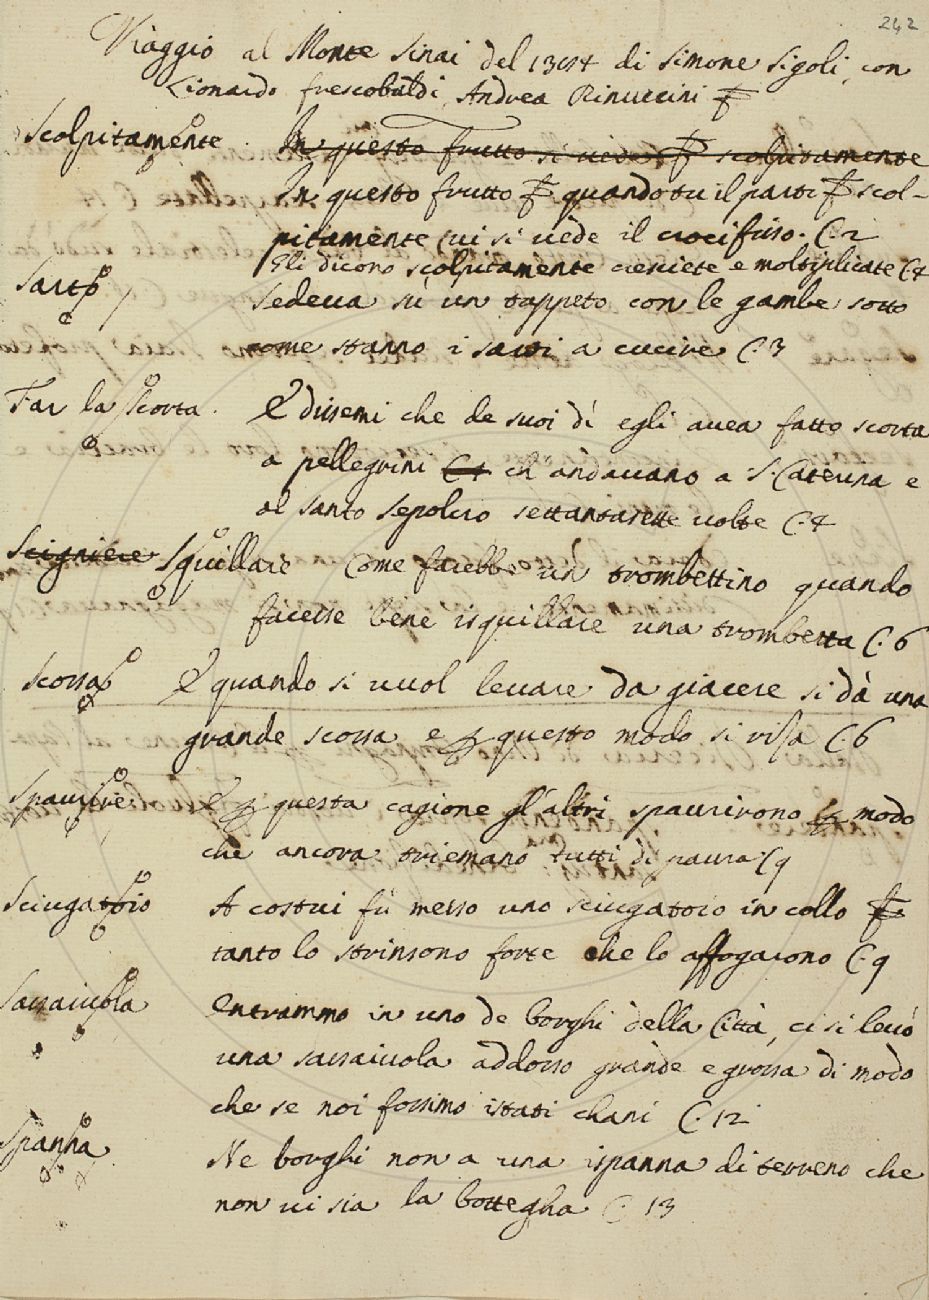 242
Viaggio al Monte Sinai del 1384 di Simone Sigoli, con
Lionardo frescobaldi, Andrea Rinuccini
Scolpitamente In questo frutto si vede scolpitamente
In questo frutto quando tu il parti scol-
pitamente vi si vede il crocifisso. C. 2
Gli dicono scolpitamente cresciete e moltiplicate C 4
Sarto Sedeva sù un tappeto con le gambe sotto
come stanno i sarti a cucire C. 3
Far la scorta. E dissemi che de suoi dì egli avea fatto scorta
a pellegrini C 4 ch' andavano a S. Caterina e
al santo Sepolcro settantasette volte C. 4
Scigniere Squillare Come farebbe un trombettino quando
facesse bene isquillare una trombetta C. 6
Scossa E quando si vuol levare da giacere si dà una
grande scossa e questo modo si rissa C 6
Spaurire E questa cagione gl'altri spaurirono modo
che ancora triemano tutti di paura C 9
Sciugatoio A costui fù messo uno sciugatoio in collo
tanto lo strinsono forte che lo affogarono C. 9
Sassaiuola Entrammo in uno de borghi della Città, ci si levò
una sassaiuola addosso grande e grossa di modo
che se noi fossimo istati chani C. 12
Spanna Ne borghi non a una ispanna di terreno che
non vi sia la bottegha C. 13